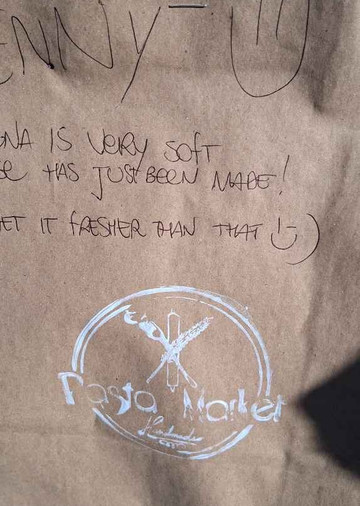 ENNY
NA IS VERY SOFT
HAS JUST BEEN MADE!
ET IT FRESHER THAN THAT :-)
Pasta Market
Handmade